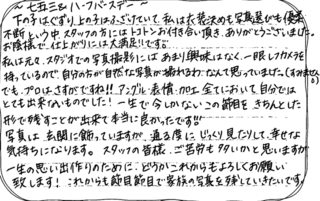 ～七五三&ハーフバースデー～
下の子はぐずり、上の子はふざけていて 私は衣装決めも写真選びも優柔
不断という中 スタッフの方にはトコトンお付き合い頂き、ありがとうございました。
お陰様で仕上がりには大満足!!です。
私は元々、スタジオでの写真撮影には あまり興味はなく、一眼レフカメラを
持っているので 自分の方が自然な写真が撮れるわ なんて思っていました(すみません)
でも、プロはさすがですね!! アングル・表情・加工全てにおいて自分では
とても出来ないものでした! 一生で今しかないこの節目をきちんとした
形で残すことが出来て本当に良かったです!!
写真は玄関に飾っていますが、通る度に じっくり見たりして、幸せな
気持ちになります。 スタッフの皆様、ご苦労も多いかと思いますが
一生の思い出作りのために、どうかこれからもよろしくお願い
致します! これからも節目節目で家族の写真を残していきたいです。